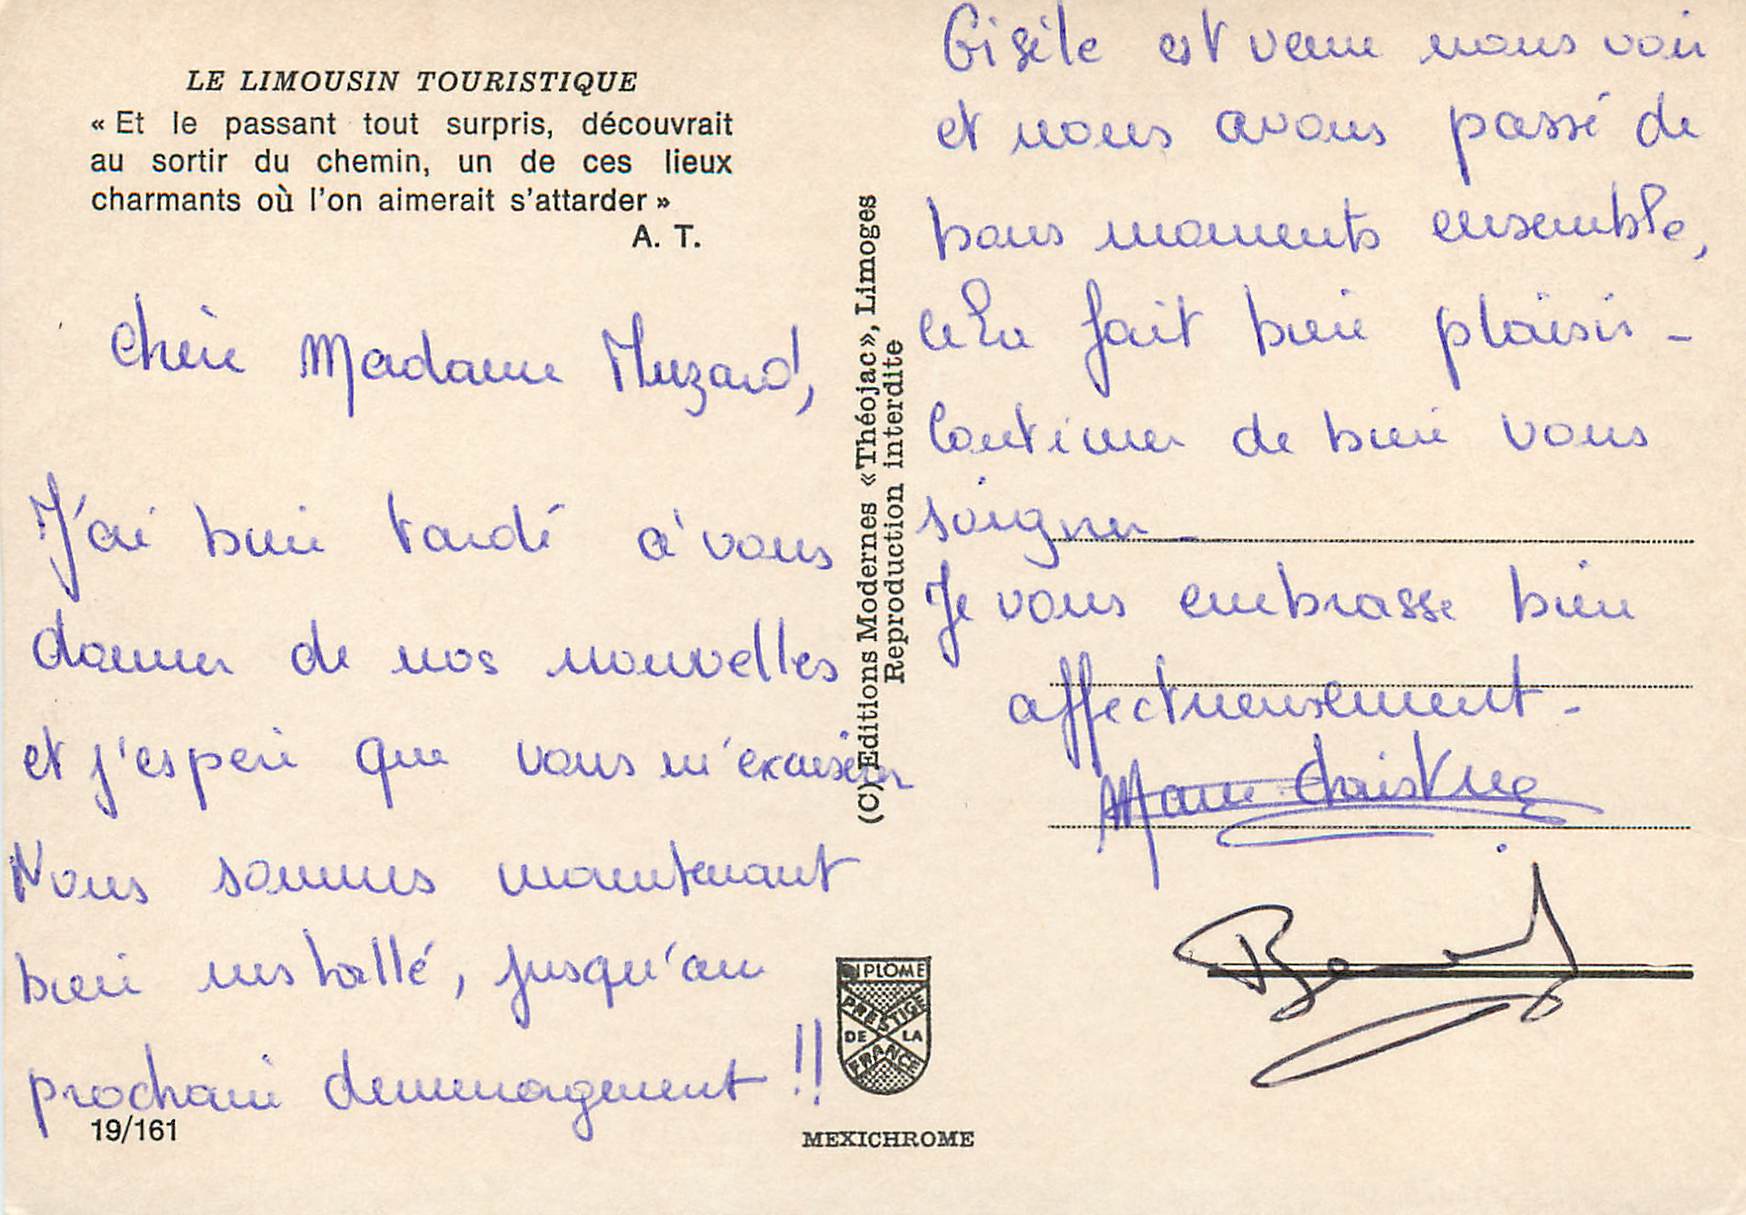 LE LIMOUSIN TOURISTIQUE
« Et le passant tout surpris, découvrait
au sortir du chemin, un de ces lieux
charmants où l'on aimerait s'attarder »
A. T.
Chère Madame Muzard,
J'ai bien tardé à vous
donner de nos nouvelles
et j'espère que vous m'excuserez
Nous sommes maintenant
bien installé, jusqu'au
prochain demmenagement !!
19/161
(C) Editions Modernes «Théojac», Limoges
Reproduction interdite
DIPLOME
PRESTIGE
DE LA
FRANCE
MEXICHROME
Gisèle est venu nous voir
et nous avons passé de
bons moments ensemble,
cela fait bien plaisir -
Continuer de bien vous
soigner -
Je vous embrasse bien
affectueusement -
Marie Christine